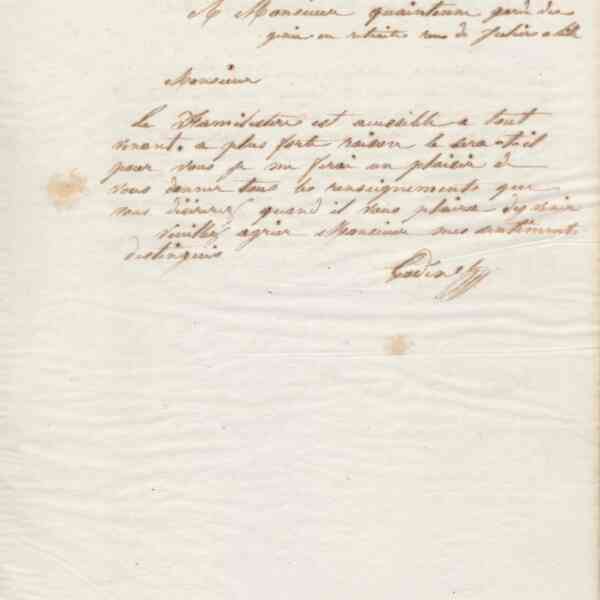 A Monsieur quaintenne garde du
génie en retraite rue de
Monsieur
Le Familistère est accessible a tout
venant. a plus forte raison le sera-t-il
pour vous je me ferai un plaisir de
vous donner tous les renseignements que
vous désirerez quand il vous plaira d'y venir
veuillez agréer Monsieur mes sentiments
distingués
Godin